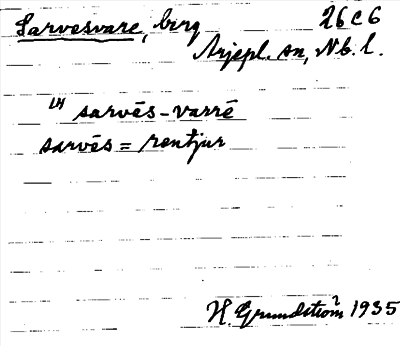 Sarvesvare, berg 26c6
Arjepl. sn, Nb. l.
LH sarvēs-varrē
sarvēs = rentjur
H. Grundström 1935